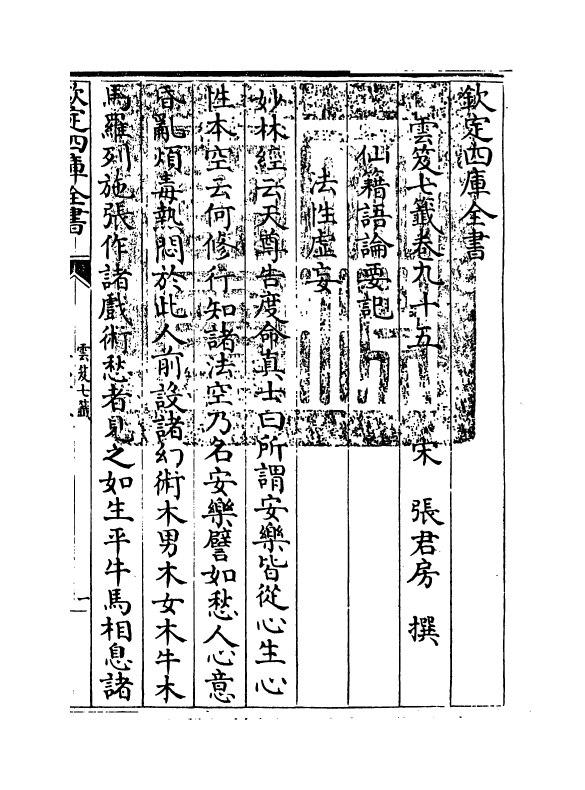 欽定四庫全書
雲笈七籤卷九十五
宋 張君房 撰
仙籍語論要記
法性虛妄
妙林經云天尊告度命真士曰所謂安樂皆從心生心
性本空云何修行知諸法空乃名安樂譬如愁人心意
昏亂煩毒熱悶於此人前設諸幻術木男木女木牛木
馬羅列施張作諸戲術愁者見之如生平牛馬相息諸
欽定四庫全書
雲笈七籤
一